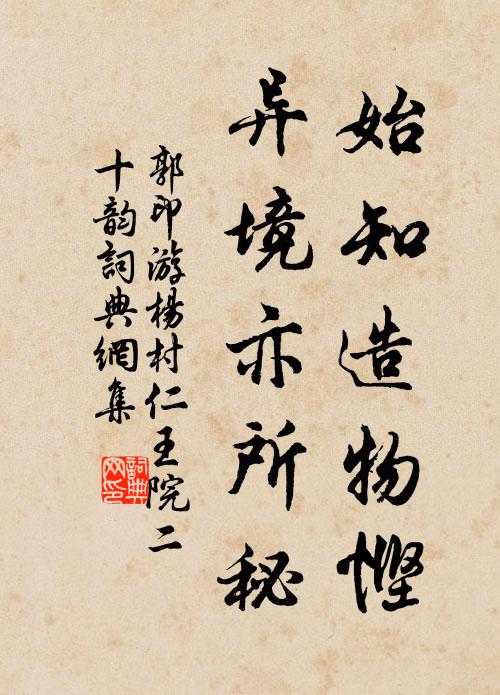 始知造物悭
异境亦所秘
郭印游楊村仁王院二
十韵詞典網集
詞典
网印